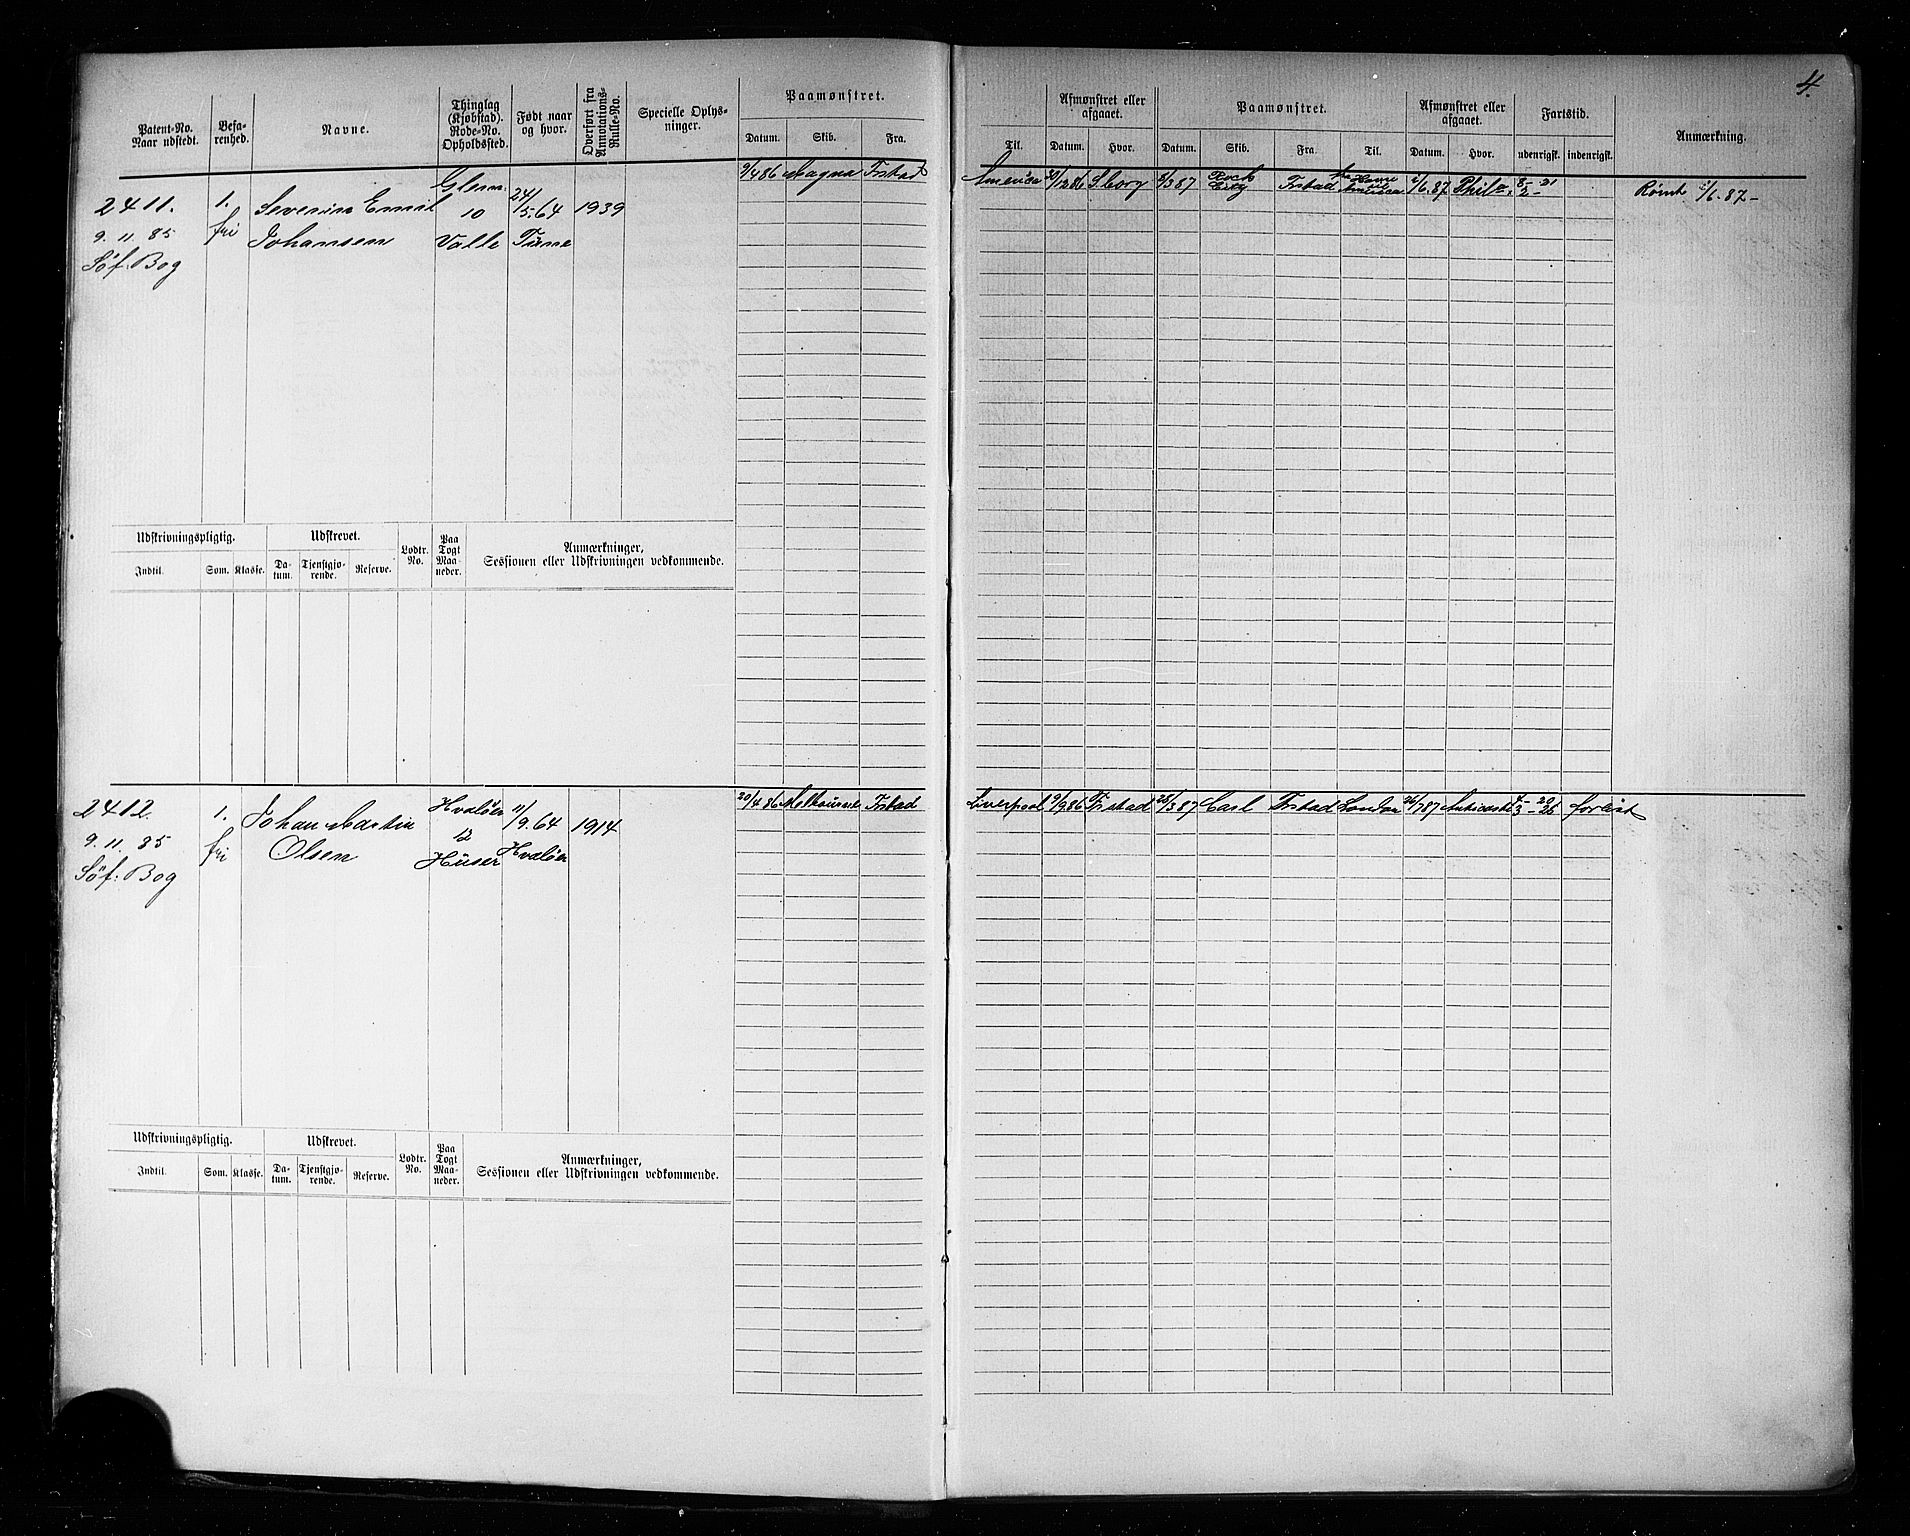 4.
Patent-No. Naar udstedt.
Befarenhed.
Navne.
Thinglag (Kjøbstad). Rode-No. Opholdssted.
Født naar og hvor.
Overført fra Annotations-Rulle-No.
Specielle Oplysninger.
Paamønstret.
Datum. Skib. Fra. Til.
Afmønstret eller afgaaet.
Datum. Hvor.
Paamønstret.
Datum. Skib. Fra. Til.
Afmønstret eller afgaaet.
Datum. Hvor.
Fartstid.
udenrigsk. indenrigsk.
Anmærkning.
2411. 1. Severin Emil Glem: 10 24/5.64 1939
9.11.85 fri Johansen Valle Tune
Søf. Bog
9/4 86 Magna Frstad America 30/12 86 S.borg 8/3 87 Rock City Frstad America /6.87 Phila.
Rømt /6.87-
Udskrivningspligtig. Udskrevet. Lodtr. No. Paa Togt Maaneder. Anmærkninger, Sessionen eller Udskrivningen vedkommende.
Indtil. Som. Klasse. Datum. Tjenstgjørende. Reserve.
2412. 1. Johan Martin Hvaløer 12 11/9.64 1914
9.11.85 fri Olsen Huser Hvaløer
Søf. Bog
20/4 86 Melbourne Frstad Liverpool 9/9 86 Frstad 28/3 87 Carl Frstad London 26/7 87 forlist
Udskrivningspligtig. Udskrevet. Lodtr. No. Paa Togt Maaneder. Anmærkninger, Sessionen eller Udskrivningen vedkommende.
Indtil. Som. Klasse. Datum. Tjenstgjørende. Reserve.